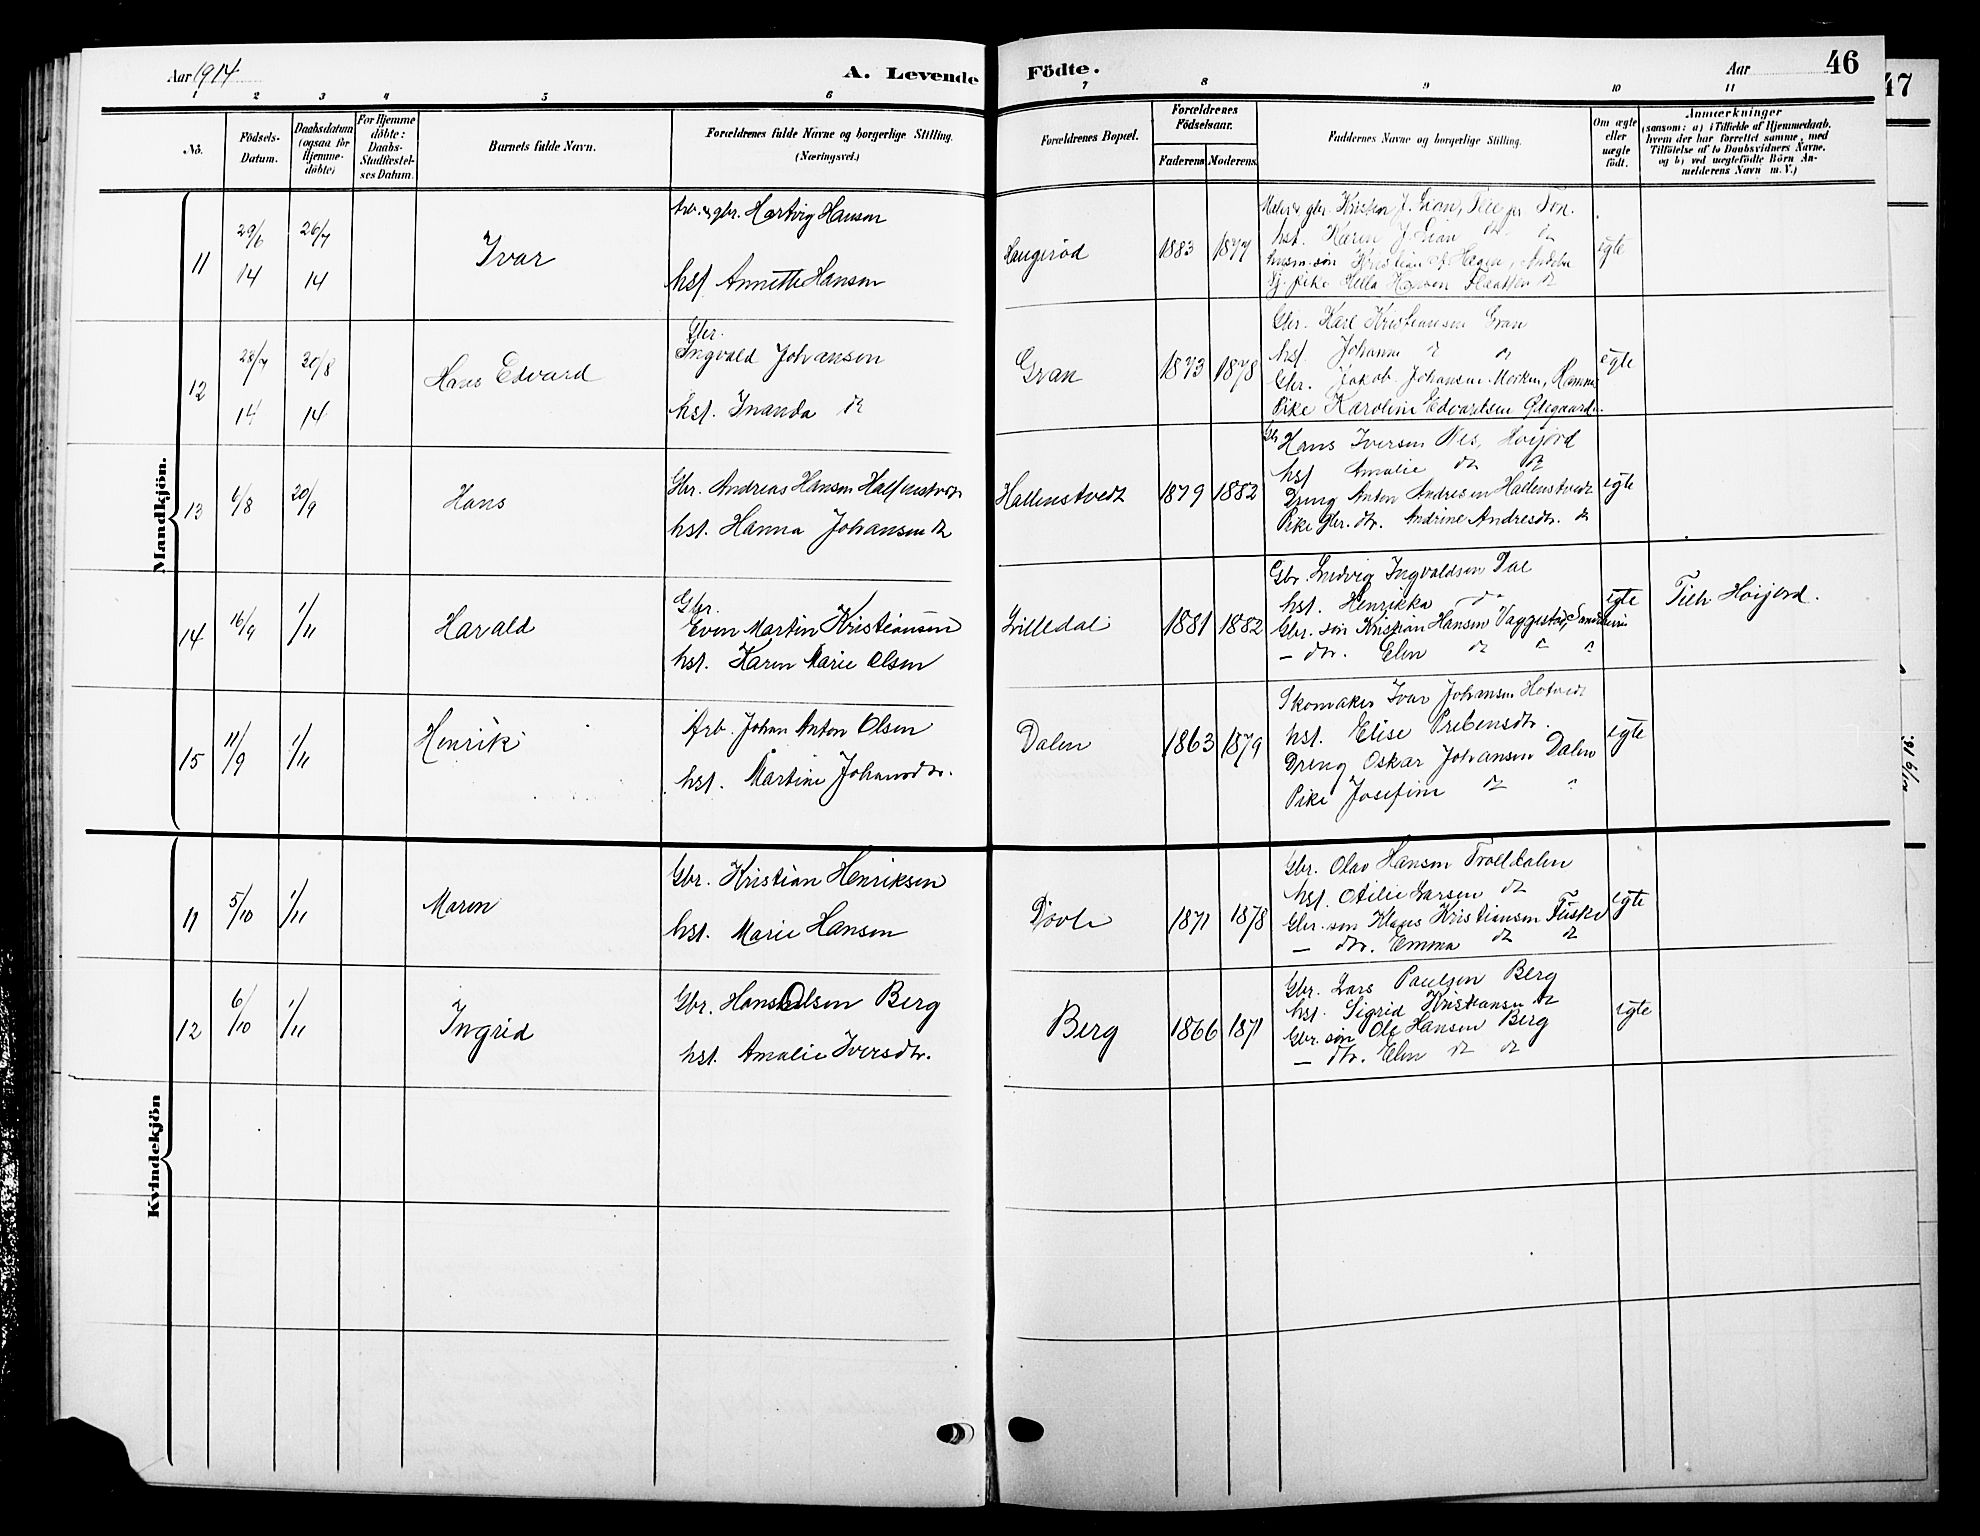 Aar 1914
A. Levende Födte.
Aar
46
47
1 2 3 4 5 6 7 8 9 10 11
No.
Födsels-Datum.
Daabsdatum (ogsaa for Hjemmedöbte)
For Hjemmedöbte: Daabs-Stadfæstelses Datum.
Barnets fulde Navn.
Forældrenes fulde Navne og borgerlige Stilling.
(Næringsvei.)
Forældrenes Bopæl.
Forældrenes Födselsaar.
Faderens Moderens
Faddernes Navne og borgerlige Stilling.
Om ægte eller uægte födt.
Anmærkninger
(saasom: a) i Tilfælde af Hjemmedaab, hvem der har forrettet samme, med Tilföielse af to Daabsvidners Navne, og b) ved uegtefödte Börn Anmelderens Navn m. V.)
Mandkjön.
11 29/6 14 26/7 14 Ivar
Arb. & gbr. Hartvig Hansen
hst. Annette Hansen
Haugeröd 1883 1877
hst. Karen J.
egte
12 28/7 14 30/8 14 Hans Edvard
Gbr.
Ingvald Johansen
hst. Inanda do
Gran 1873 1878
Gbr. Karl Kristiansen Gran
hst. Johanne do do
Gbr. Jakob Johansen
Pike Karoline Edvardsen Ödegaard
egte
13 6/8 20/9 Hans
Gbr. Andreas Hansen Hallenstvedt
hst. Hanna Johansen do
Hallenstvedt 1879 1882
Gbr. Hans Iversen Nes, Höijord
hst. Amalie do do
Dreng Anton Andresen Hallenstvedt
Pike gbr. dtr. Andrine Andresdtr. do
egte
14 16/9 1/11 Harald
Gbr.
Even Martin Kristiansen
hst. Karen Marie Olsen
Lilledal 1881 1882
Gbr. Ludvig Ingvaldsen Dal
hst. Henrikka do
Gbr. sön Kristian Hansen
— dtr. Elen do " "
egte
Höijord.
15 11/9 1/11 Henrik
Arb. Johan Anton Olsen
hst. Martine Johansdtr.
Dalen 1863 1879
Skomaker Ivar Johansen Hotvedt
hst. Elise Prebensdtr.
Dreng Oskar Johansen Dalen
Pike Josefine do "
egte
Kvindekjön
11 5/10 1/11 Maren
Gbr. Kristian Henriksen
hst. Marie Hansen
1871 1878
Gbr. Olav Hansen Trolldalen
hst. Otilie Larsen do
Gbr. sön Klaus Kristiansen
— dtr. Emma do do
egte
12 6/10 1/11 Ingrid
Gbr. Hans Olsen Berg
hst. Amalie Iversdtr.
Berg 1866 1871
Gbr. Lars Paulsen Berg
hst. Sigrid Kristiansen do
Gbr. sön Ole Hansen Berg
— dtr. Elen do do
egte